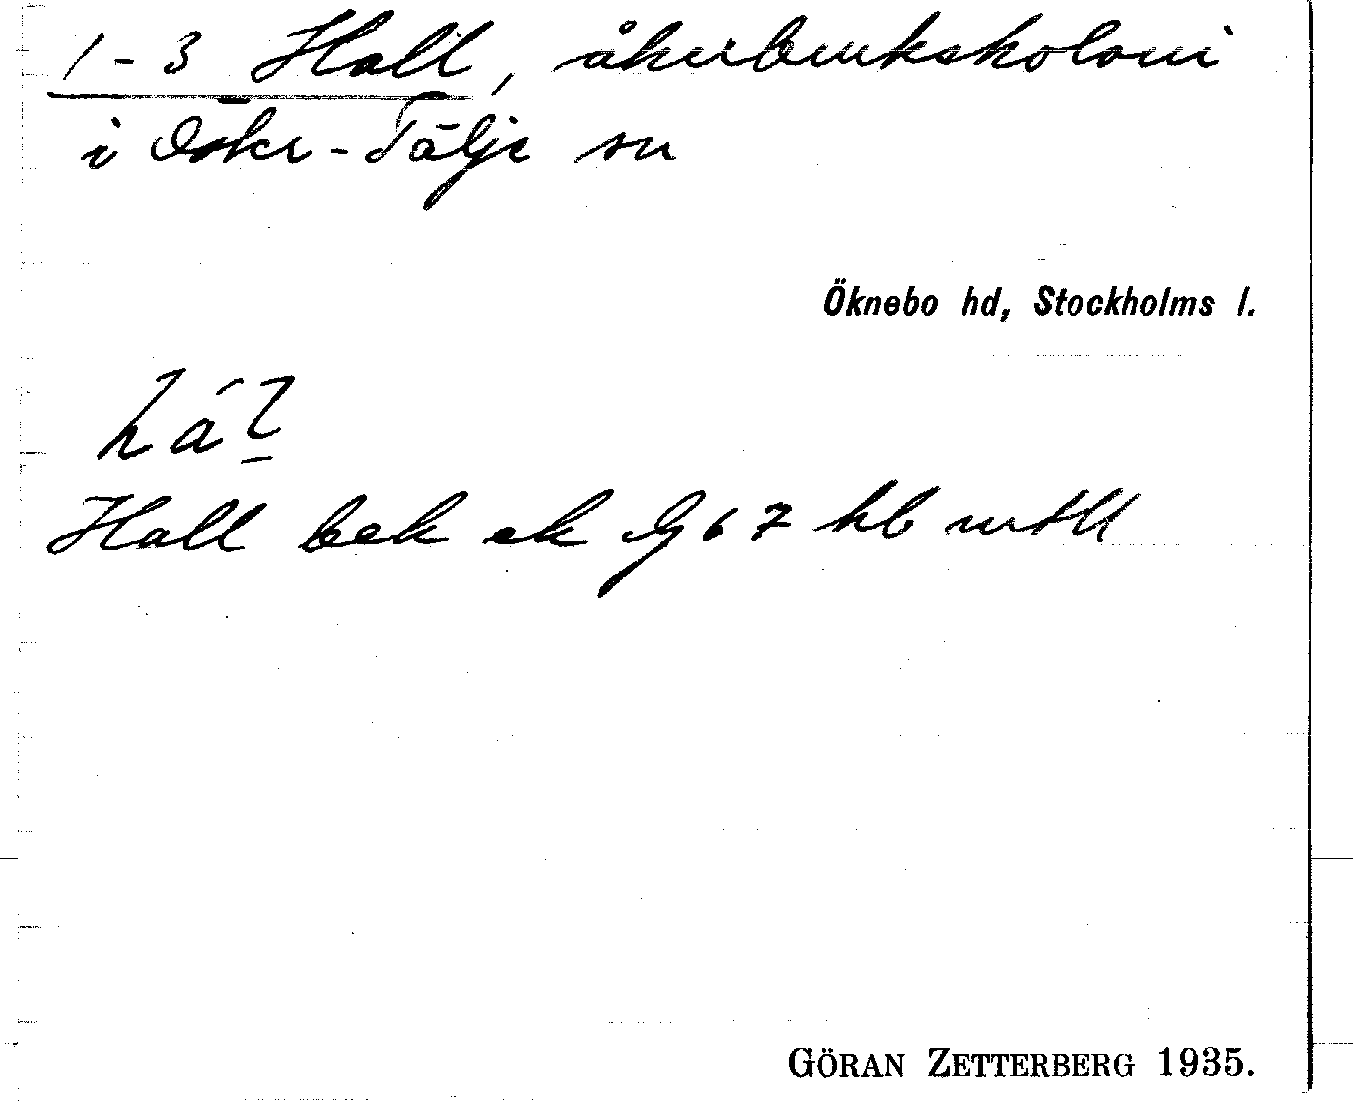 1-3 Hall, åkerbrukskoloni
i Öster-Tälje sn
Öknebo hd, Stockholms l.
Hall bek ek G 67 hb mtll
GÖRAN ZETTERBERG 1935.